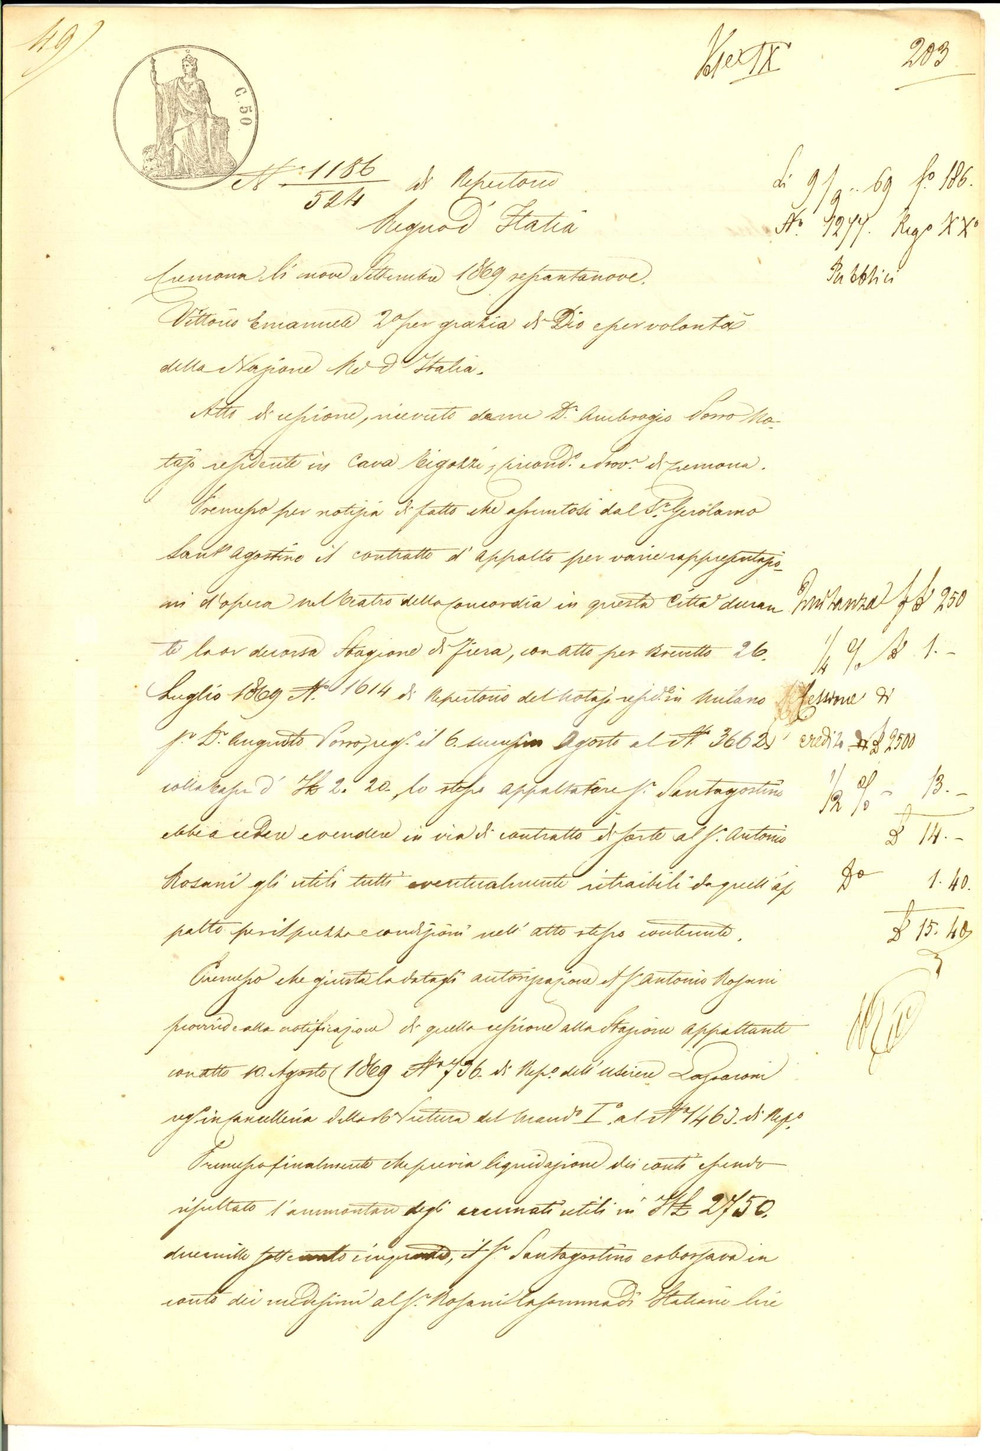 49)
203
C. 50
N° 1186
524
di Repertorio
Regno d'Italia
Li 9/9 .. 69 f° 186.
N° 1277. Reg° XX°
Pubblici
Cremona li nove Settembre 1869 sessantanove.
Vittorio Emanuele 2° per grazia di Dio e per volontà
della Nazione Re d'Italia.
Atto di cessione, ricevuto da me Dr. Ambrogio Porro No-
tajo residente in Cava Tigozzi, circond.° e Prov.ª di Cremona.
Premesso per notizia di fatto che assuntosi dal Sr. Gerolamo
Sant'Agostino il contratto d'appalto per varie rappresentazio-
ni d'opera nel Teatro della Concordia in questa Città duran
te la or decorsa Stagione di Fiera, con atto per Brevetto 26.
Luglio 1869 N° 1614 di Repertorio del Notajo resid.e in Milano
Sr. Dr. Augusto Porro, reg.° il 6. success° Agosto al N° 3662
colla tassa d' It£ 2. 20., lo stesso appaltatore Sr. Santagostino
ebbe a cedere e vendere in via di contratto di sorte al Sr. Antonio
Rosani gli utili tutti eventualmente ritraibili da quell'ap
palto per il prezzo e condizioni nell'atto stesso contenute.
Premesso che giusta la datagli autorizzazione il Sr. Antonio Rosani
provvide alla notificazione di quella cessione alla Stazione appaltante
con atto 10. Agosto 1869 N° 736. di Rep.° dell'Usciere
reg.° in Cancelleria della R. Pretura del Mand.° I.° al N° 1463. di Rep.°
Premesso finalmente che previa liquidazione dei conti essendo
risultato l'ammontare degli accennati utili in It£ 2750.
duemille settecento cinquanta, il Sr. Santagostino esborsava in
conto dei medesimi al Sr. Rosani la somma di Italiane lire
Quitanza £ 250
1/4 % £ 1. -
Cessione di
credito £ 2500
1/2 % - 13. -
£ 14. -
D° 1. 40.
£ 15. 40